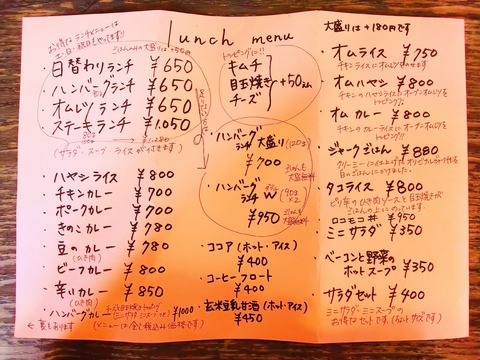 lunch menu
お得なランチメニューは
土・日・祝日もやってます!!
ごはんのみの大盛りは+50円
・日替わりランチ ¥650
・ハンバーグランチ ¥650
・オムレツランチ ¥650
・ステーキランチ ¥1,050
(サラダ・スープ・ライスが付きます)
・ハヤシライス ¥800
・チキンカレー ¥700
・ポークカレー ¥700
・きのこカレー ¥780
・豆のカレー ¥780
(ひき肉)
・ビーフカレー ¥800
・辛いカレー ¥850
(ひき肉)
・ハンバーグカレー ¥1000
←裏もあります
(メニューは全て税込み価格です)
トッピングに!!
キムチ
目玉焼き
チーズ
+50
・ハンバーグランチ 大盛り(120g)
¥700
・ハンバーグランチ W (90g×2)
¥950
・ココア(ホット・アイス)
¥400
・コーヒーフロート
¥400
・玄米豆乳甘酒(ホット・アイス)
¥450
大盛りは+180円です
・オムライス ¥750
チキンライスにオムレツをのせます
・オムハヤシ ¥800
チキンのハヤシライスにオープンオムレツを
トッピング!
・オムカレー ¥800
チキンのカレーライスにオープンオムレツを
トッピング!!
・ジャークごはん ¥880
・タコライス ¥800
ピリ辛のひき肉ソースと目玉焼きが
ごはんの上にのっています
・ロコモコ丼 ¥950
・ミニサラダ ¥350
・ベーコンと野菜の
ホットスープ ¥350
・サラダセット ¥400
ミニサラダ・ミニスープの
お得なセットです。